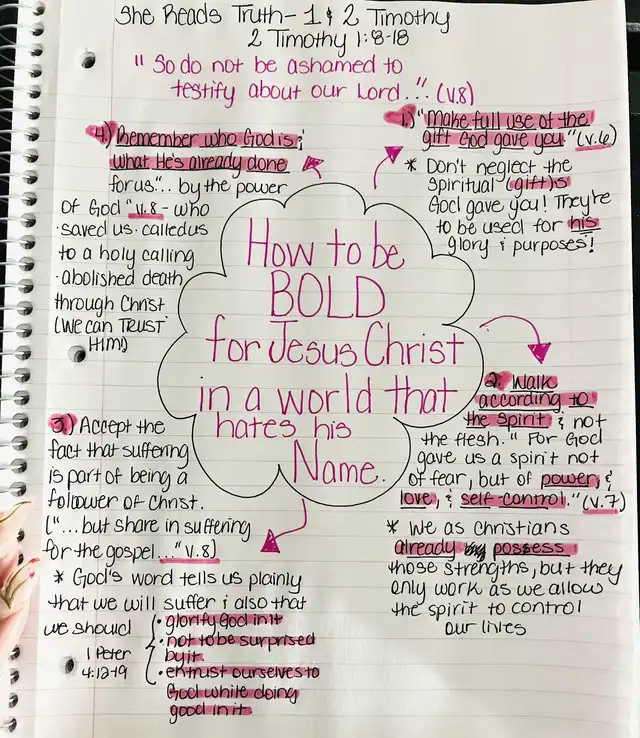 She Reads Truth - 1 & 2 Timothy
2 Timothy 1:8-18
"So do not be ashamed to
testify about our Lord..." (v.8)
How to be
BOLD
for Jesus Christ
in a world that
hates his
Name.
1.) "Make full use of the
gift God gave you" (v.6)
* Don't neglect the
spiritual (gift)s
God gave you! They're
to be used for his
glory & purposes!
2. Walk
according to
the spirit & not
the flesh. "For God
gave us a spirit not
of fear, but of power, &
love, & self-control." (v.7)
* We as Christians
already possess
those strengths, but they
only work as we allow
the spirit to control
our lives
3) Accept the
fact that suffering
is part of being a
follower of Christ.
("...but share in suffering
for the gospel..." v.8)
* God's word tells us plainly
that we will suffer & also that
we should
1 Peter
4:12-19
• glorify God in it
• not to be surprised
by it
• entrust ourselves to
God while doing
good in it
4) Remember who God is &
what He's already done
for us"... by the power
of God" v.8 - who
• saved us • called us
to a holy calling
• abolished death
through Christ
(We can TRUST
HIM)